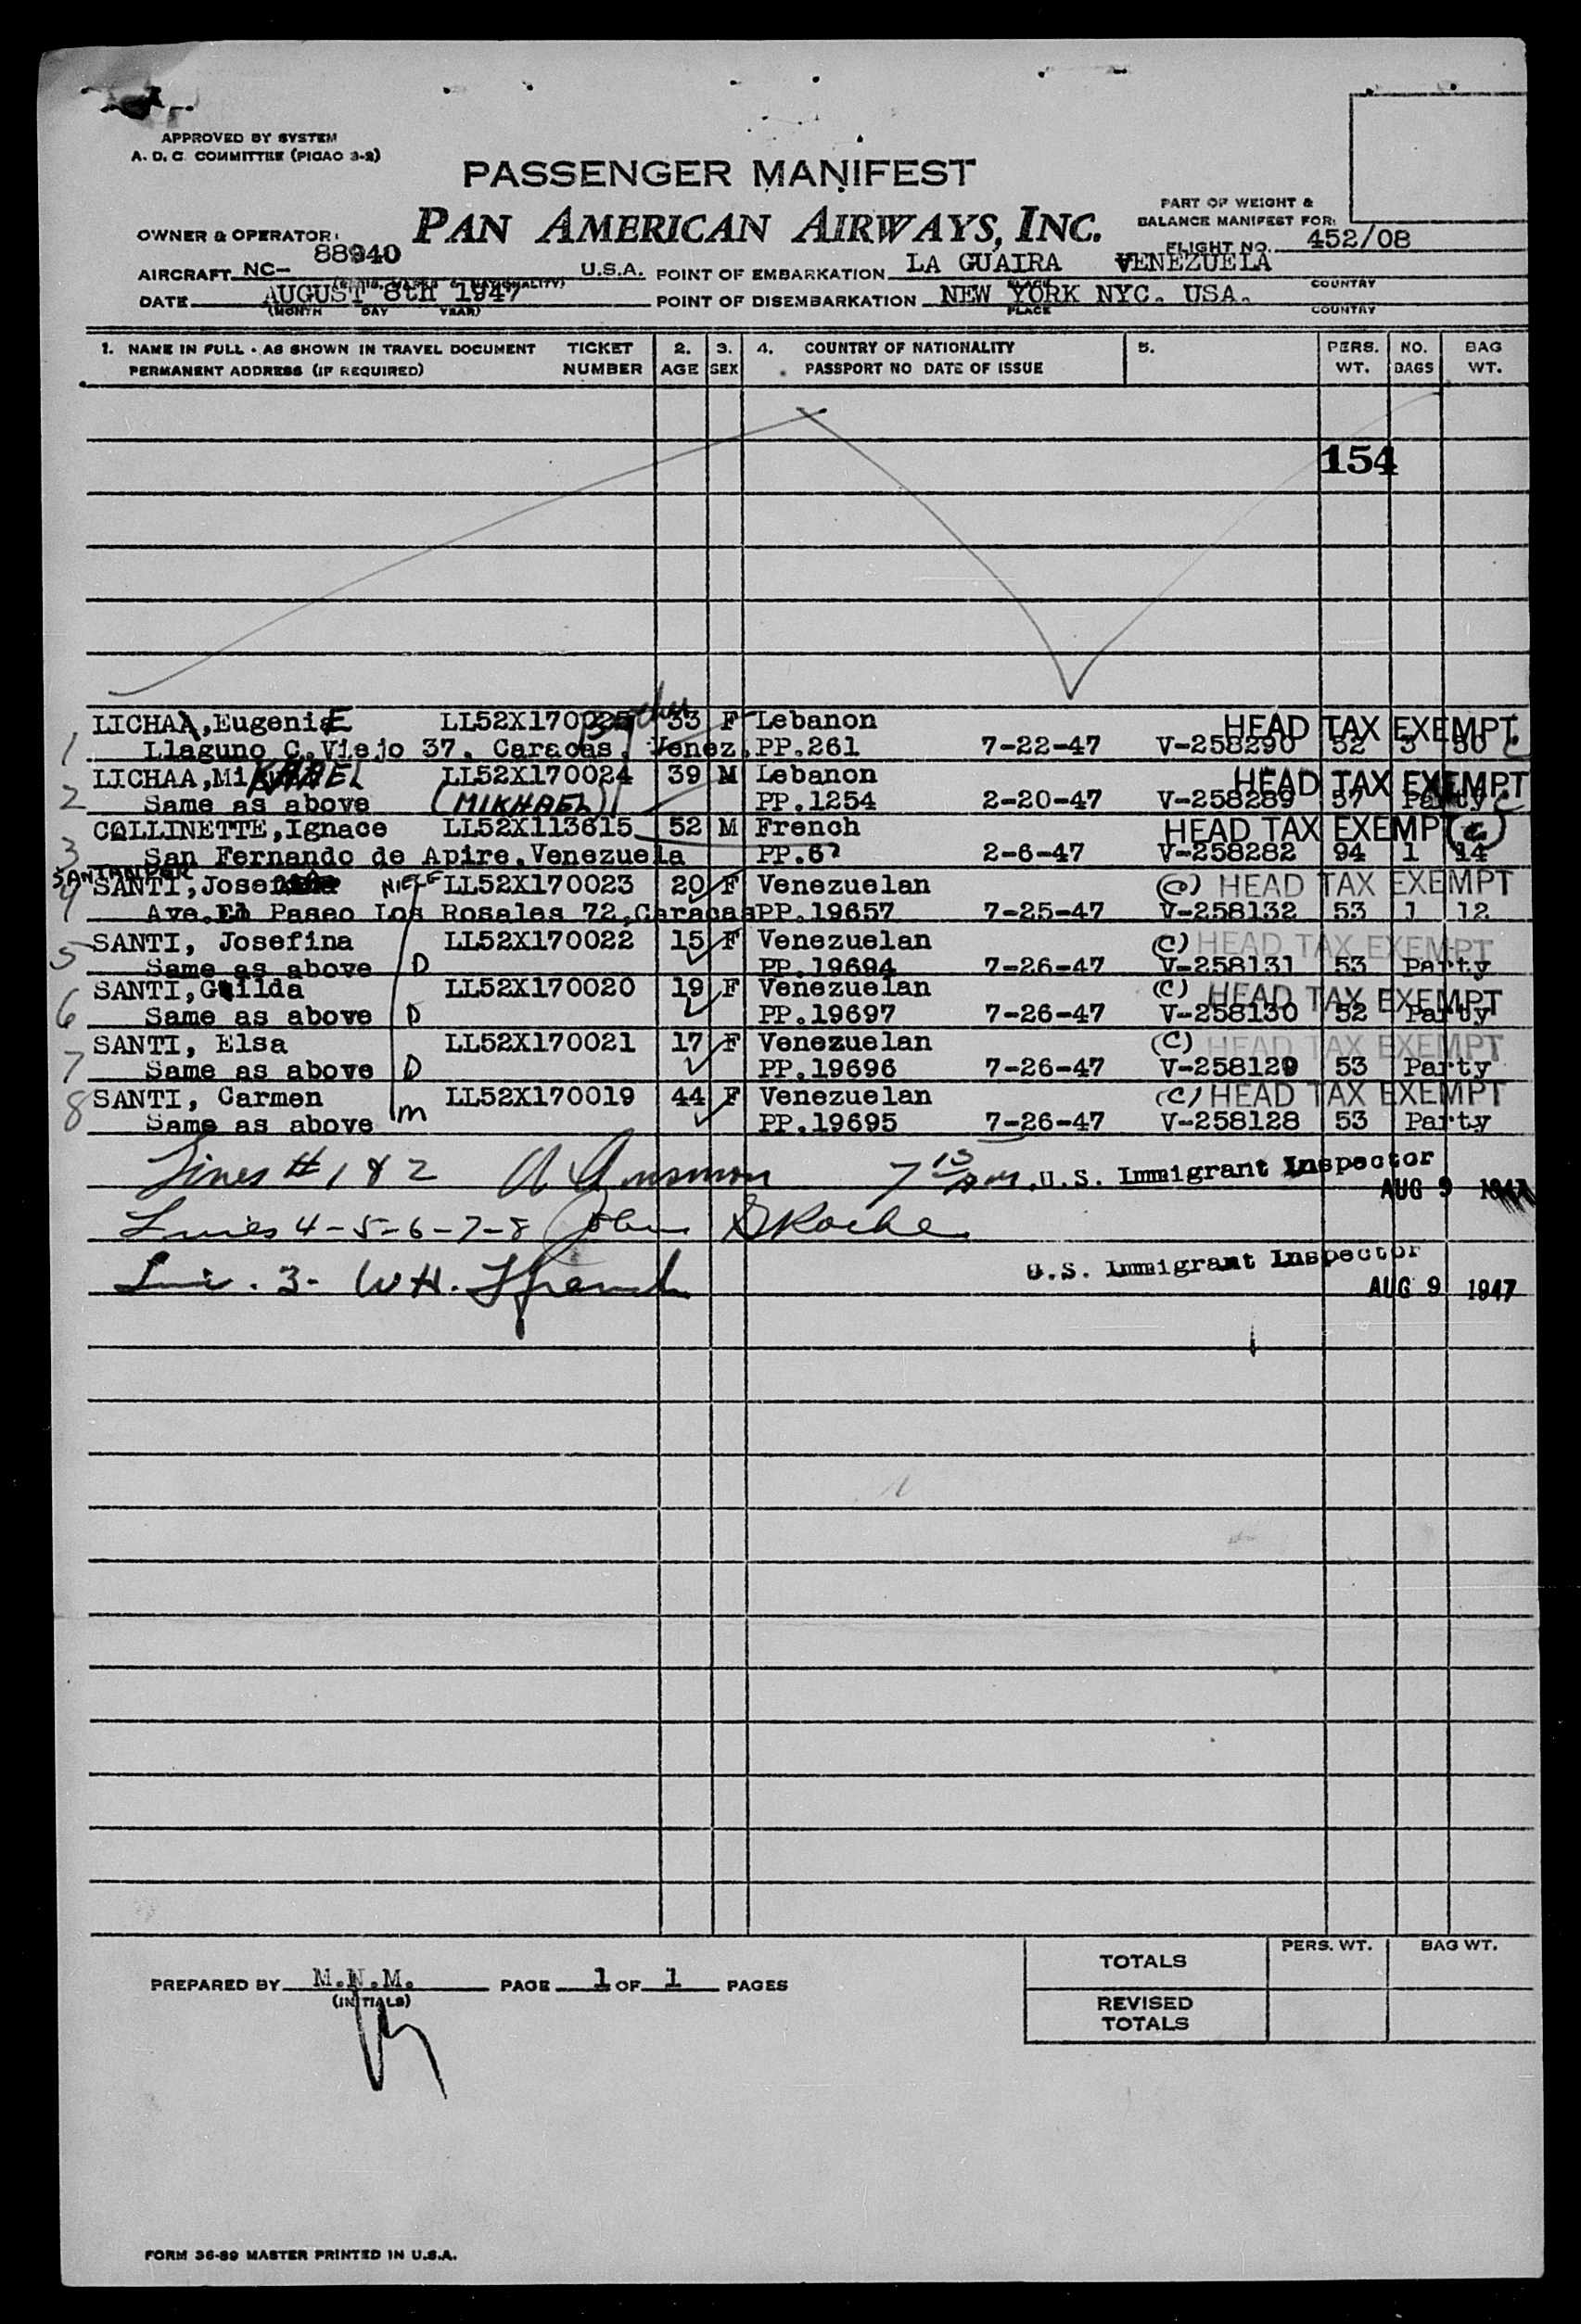 APPROVED BY SYSTEM
A. D. C. COMMITTEE (PICAO 3-2)
PASSENGER MANIFEST
PAN AMERICAN AIRWAYS, INC.
PART OF WEIGHT &
BALANCE MANIFEST FOR:
OWNER & OPERATOR:
FLIGHT NO. 452/08
AIRCRAFT NC- 88940 U.S.A. POINT OF EMBARKATION LA GUAIRA VENEZUELA
COUNTRY
DATE AUGUST 8th 1947 POINT OF DISEMBARKATION NEW YORK NYC. USA.
(MONTH DAY YEAR) PLACE COUNTRY
1. NAME IN FULL - AS SHOWN IN TRAVEL DOCUMENT TICKET 2. 3. 4. COUNTRY OF NATIONALITY 5. PERS. NO. BAG
PERMANENT ADDRESS (IF REQUIRED) NUMBER AGE SEX PASSPORT NO DATE OF ISSUE WT. BAGS WT.
154
LICHAA, Eugenie LL52X170025 33 F Lebanon HEAD TAX EXEMPT
1 Llaguno C. Viejo 37. Caracas, Venez. PP.261 7-22-47 V-258290 52 3 50 C
LICHAA, MiKHAEL LL52X170024 39 M Lebanon HEAD TAX EXEMPT
2 Same as above (MIKHAEL) PP.1254 2-20-47 V-258289 57 Party C
COLLINETTE, Ignace LL52X113615 52 M French HEAD TAX EXEMP (C)
3 San Fernando de Apire. Venezuela PP.6 2-6-47 V-258282 94 1 14
SANTANDER
SANTI, Josef NIECE LL52X170023 20 F Venezuelan (C) HEAD TAX EXEMPT
4 Ave. El Paseo Los Rosales 72, Caracas PP.19657 7-25-47 V-258132 53 1 12
SANTI, Josefina LL52X170022 15 F Venezuelan (C) HEAD TAX EXEMPT
5 Same as above D PP.19694 7-26-47 V-258131 53 Party
SANTI, Guilda LL52X170020 19 F Venezuelan (C) HEAD TAX EXEMPT
6 Same as above D PP.19697 7-26-47 V-258130 52 Party
SANTI, Elsa LL52X170021 17 F Venezuelan (C) HEAD TAX EXEMPT
7 Same as above D PP.19696 7-26-47 V-258129 53 Party
SANTI, Carmen LL52X170019 44 F Venezuelan (C) HEAD TAX EXEMPT
8 Same as above M PP.19695 7-26-47 V-258128 53 Party
Lines # 1 & 2 7 15 AM. U.S. Immigrant Inspector
AUG 9 1947
Lines 4-5-6-7-8 John Roche
U.S. Immigrant Inspector
Lin. 3- W.H.
AUG 9 1947
TOTALS PERS. WT. BAG WT.
PREPARED BY M.N.M. PAGE 1 OF 1 PAGES
(INITIALS)
REVISED
TOTALS
FORM 36-89 MASTER PRINTED IN U.S.A.